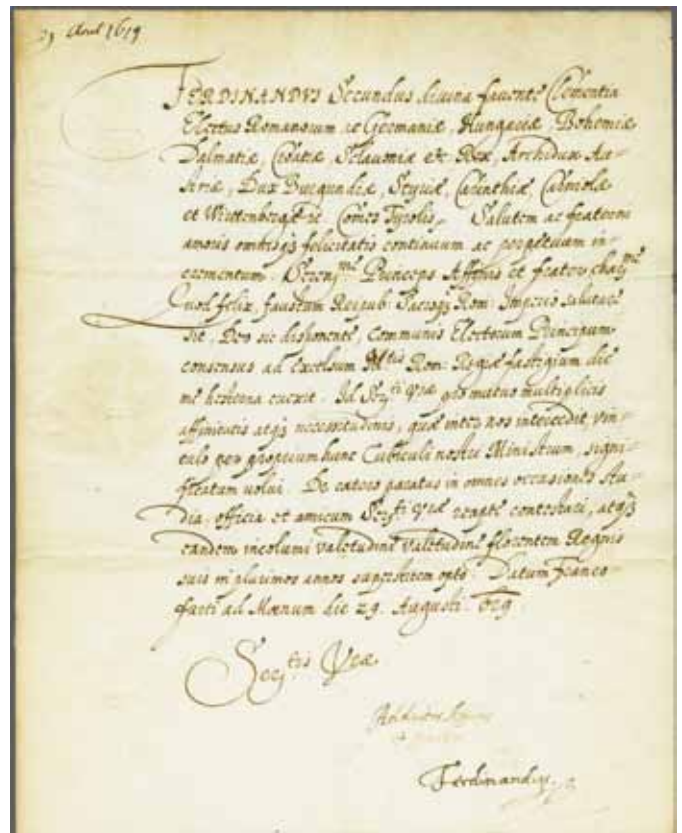 29 Aout 1619
FERDINANDVS Secundus divina favente Clementia
Electus Romanorum ac Germaniæ, Hungariæ, Bohemiæ
Dalmatiæ, Croatiæ, Sclavoniæ &c Rex, Archidux Au-
striæ, Dux Burgundiæ, Styriæ, Carinthiæ, Carniolæ
et Wirtenbergæ &c. Comes Tyrolis, Salutem ac fraterni
amoris omnisqȝ felicitatis continuum ac perpetuum in-
crementum. Serenme Princeps Affinis et frater charme
Quod felix, faustum Reipub: Sacroqȝ Rom: Imperio salutare
sit, Deo sic disponente, communis Electorum Principum
consensus ad excelsum Mtis Rom: Regiæ fastigium die
me hesterna evexit. Id Serti Vræ pro mutuo multiplicis
affinitatis atqȝ necessitudinis, quæ inter nos intercedit, vin-
culo per proprium hunc Cubiculi nostri Ministrum, signi-
ficatum volui. De cætero paratus in omnes occasiones stu-
dia officia et amicum Serti Vræ contestari, atqȝ
eandem incolumi valetudine valetudine florentem Regnis
suis in plurimos annos superstitem opto. Datum Franco-
furti ad Mœnum die 29. Augusti. 619
Sertis Vræ
Ferdinandus